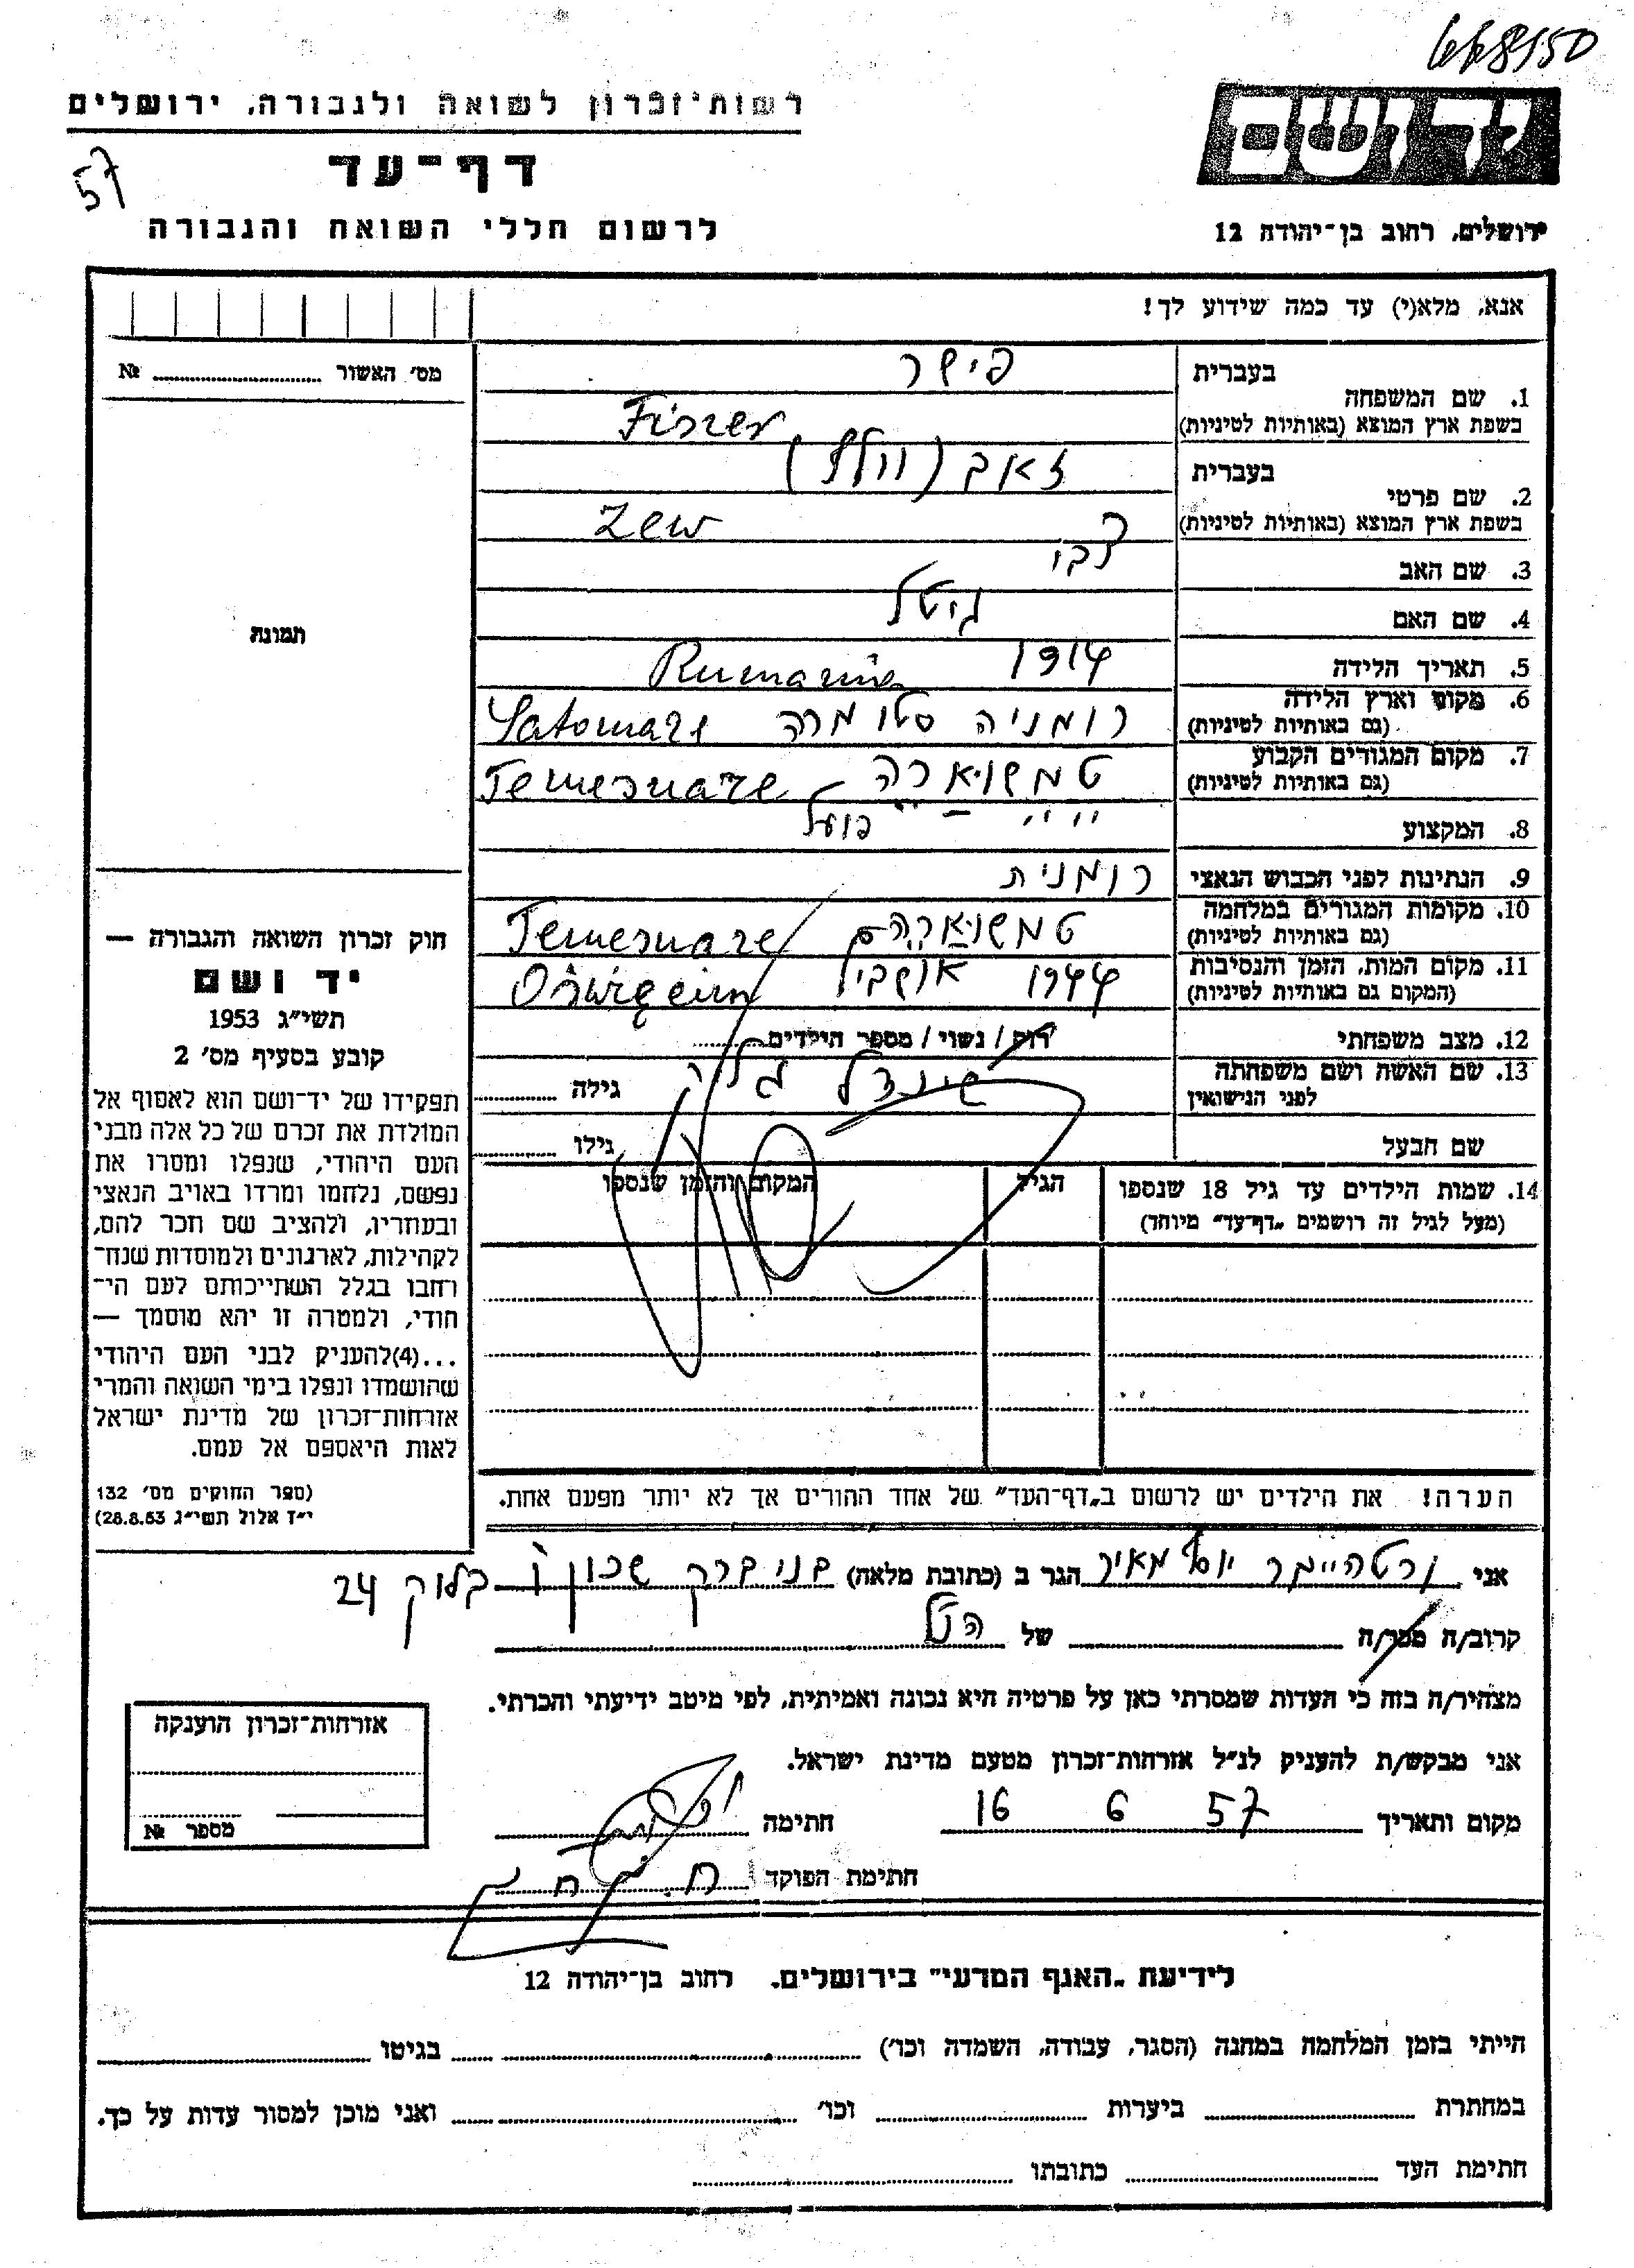 668150
יד ושם
רשות־זכרון לשואה ולגבורה, ירושלים
57
דף־עד
לרשום חללי השואה והגבורה
ירושלים, רחוב בן־יהודה 12
אנא, מלא(י) עד כמה שידוע לך!
מס׳ האשור № 
תמונה
1. שם המשפחה
בעברית פישר
בשפת ארץ המוצא (באותיות לטיניות) Fiszer
2. שם פרטי
בעברית זאב (וולף)
בשפת ארץ המוצא (באותיות לטיניות) Zew
3. שם האב צבי
4. שם האם גיטל
5. תאריך הלידה 1914 Rumania
6. מקום וארץ הלידה
(גם באותיות לטיניות) רומניה סטו מרה Satomare
7. מקום המגורים הקבוע
(גם באותיות לטיניות) טמשוארה Temesware
8. המקצוע פועל
9. הנתינות לפני הכבוש הנאצי רומנית
10. מקומות המגורים במלחמה
(גם באותיות לטיניות) טמשוארה Temesware
11. מקום המות, הזמן והנסיבות
(המקום גם באותיות לטיניות) 1944
12. מצב משפחתי רוק / נשוי / מספר הילדים
13. שם האשה ושם משפחתה
לפני הנישואין שינדל גילה
שם הבעל גילו
14. שמות הילדים עד גיל 18 שנספו
(מעל לגיל זה רושמים „דף־עד״ מיוחד)
הגיל
המקום והזמן שנספו
הערה! את הילדים יש לרשום ב„דף־העד״ של אחד ההורים אך לא יותר מפעם אחת.
חוק זכרון השואה והגבורה —
יד ושם
תשי״ג 1953
קובע בסעיף מס׳ 2
תפקידו של יד־ושם הוא לאסוף אל
המולדת את זכרם של כל אלה מבני
העם היהודי, שנפלו ומסרו את
נפשם, נלחמו ומרדו באויב הנאצי
ובעוזריו, ולהציב שם וזכר להם,
לקהילות, לארגונים ולמוסדות שנח־
רחבו בגלל השתייכותם לעם הי־
הודי, ולמטרה זו יהא מוסמך —
...(4)להעניק לבני העם היהודי
שהושמדו ונפלו בימי השואה והמרי
אזרחות־זכרון של מדינת ישראל
לאות היאספם אל עמם.
(ספר החוקים מס׳ 132
י״ז אלול תשי״ג 28.8.53)
אני ורטהיימר יוסף מאיר הגר ב (כתובת מלאה) בני ברק שכון ו בלוק 24
קרוב/ה מכר/ה של הנ״ל
מצהיר/ה בזה כי העדות שמסרתי כאן על פרטיה היא נכונה ואמיתית, לפי מיטב ידיעתי והכרתי.
אני מבקש/ת להעניק לנ״ל אזרחות־זכרון מטעם מדינת ישראל.
מקום ותאריך 16 6 57 חתימה
חתימת הפוקד
אזרחות־זכרון הוענקה
מספר №
לידיעת „האגף המדעי״ בירושלים. רחוב בן־יהודה 12
הייתי בזמן המלחמה במחנה (הסגר, עבודה, השמדה וכו׳) בגיטו
במחתרת ביערות וכו׳ ואני מוכן למסור עדות על כך.
חתימת העד כתובתו